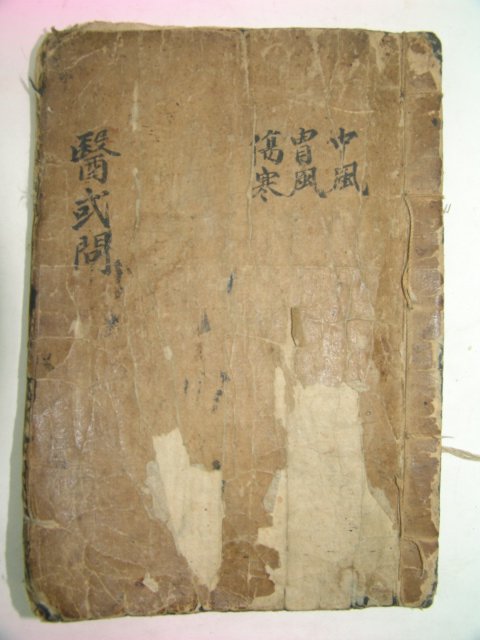 中風
冐風
傷寒
醫或問